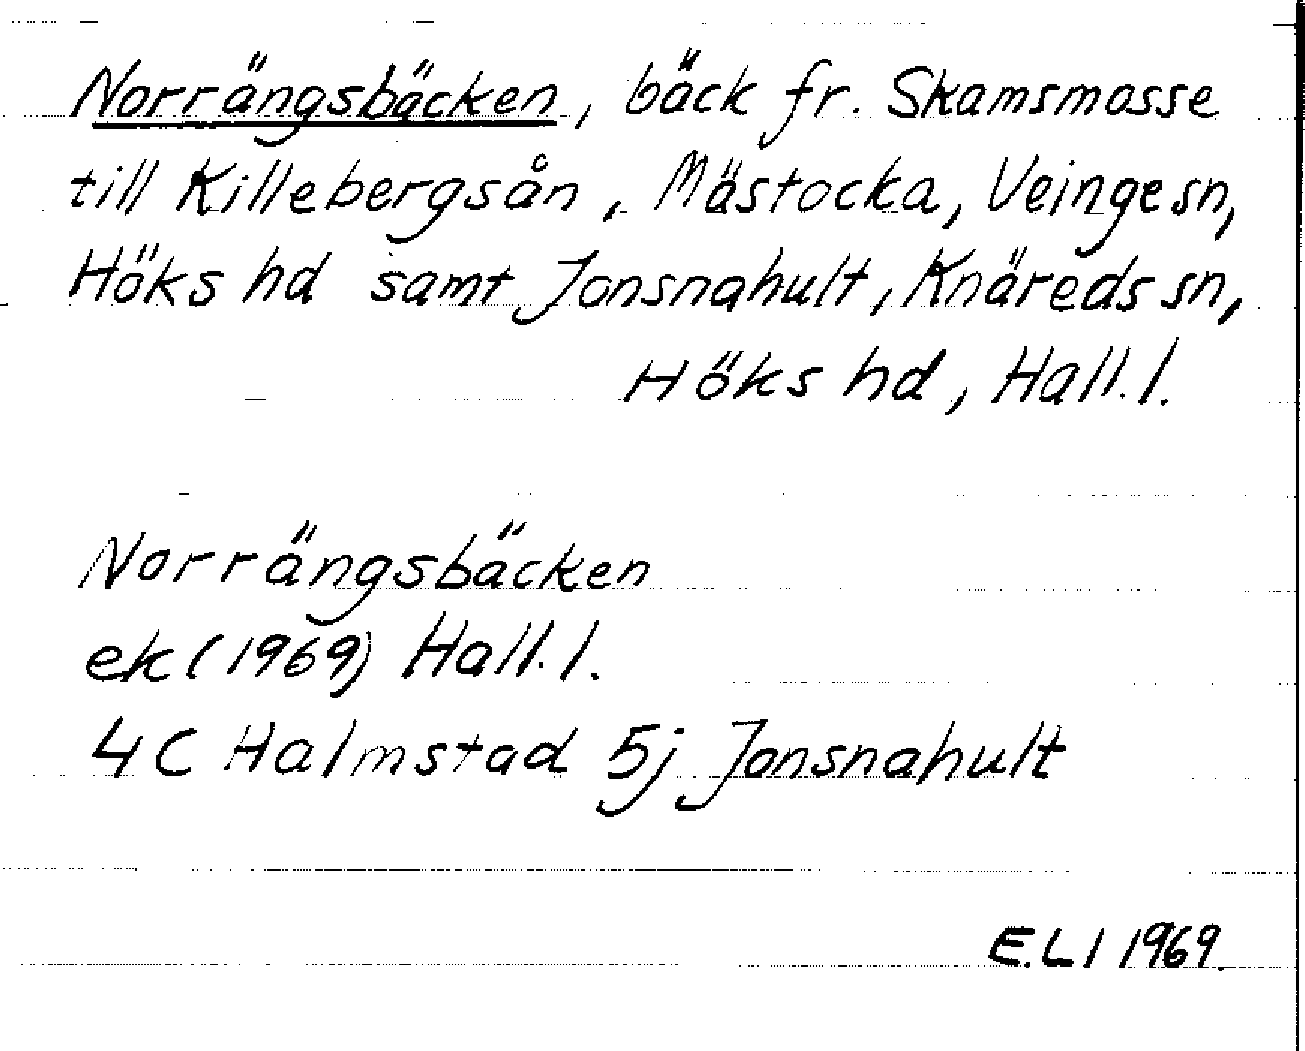 Norrängsbäcken, bäck fr. Skamsmosse
till Killebergsån, Mästocka, Veinge sn,
Höks hd samt Jonsnahult, Knäreds sn,
Höks hd, Hall. l.
Norrängsbäcken
ek (1969) Hall. l.
4C Halmstad 5j Jonsnahult
E.L1 1969